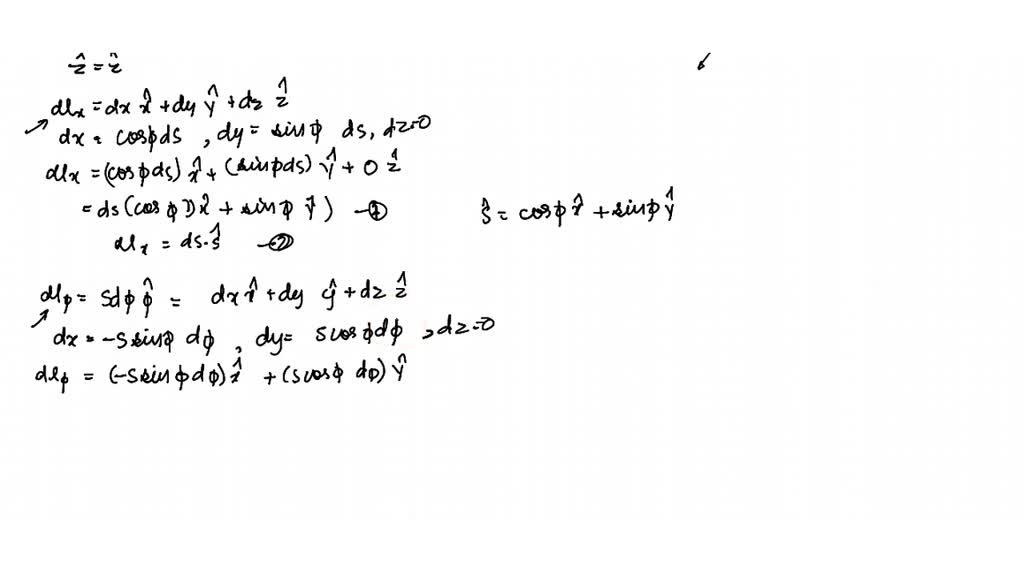 ẑ = ẑ
dlx = dx x̂ + dy ŷ + dz ẑ
dx = cosϕds , dy = sinϕ ds, dz=0
dlx = (cosϕds) x̂ + (sinϕds) ŷ + 0 ẑ
= ds(cosϕ) x̂ + sinϕ ŷ) —①
ŝ = cosϕ x̂ + sinϕ ŷ
dlx = ds·ŝ —②
dlϕ = sdϕ ϕ̂ = dx x̂ + dy ŷ + dz ẑ
dx = -s sinϕ dϕ , dy = s cosϕdϕ , dz=0
dlϕ = (-s sinϕdϕ) x̂ + (s cosϕ dϕ) ŷ